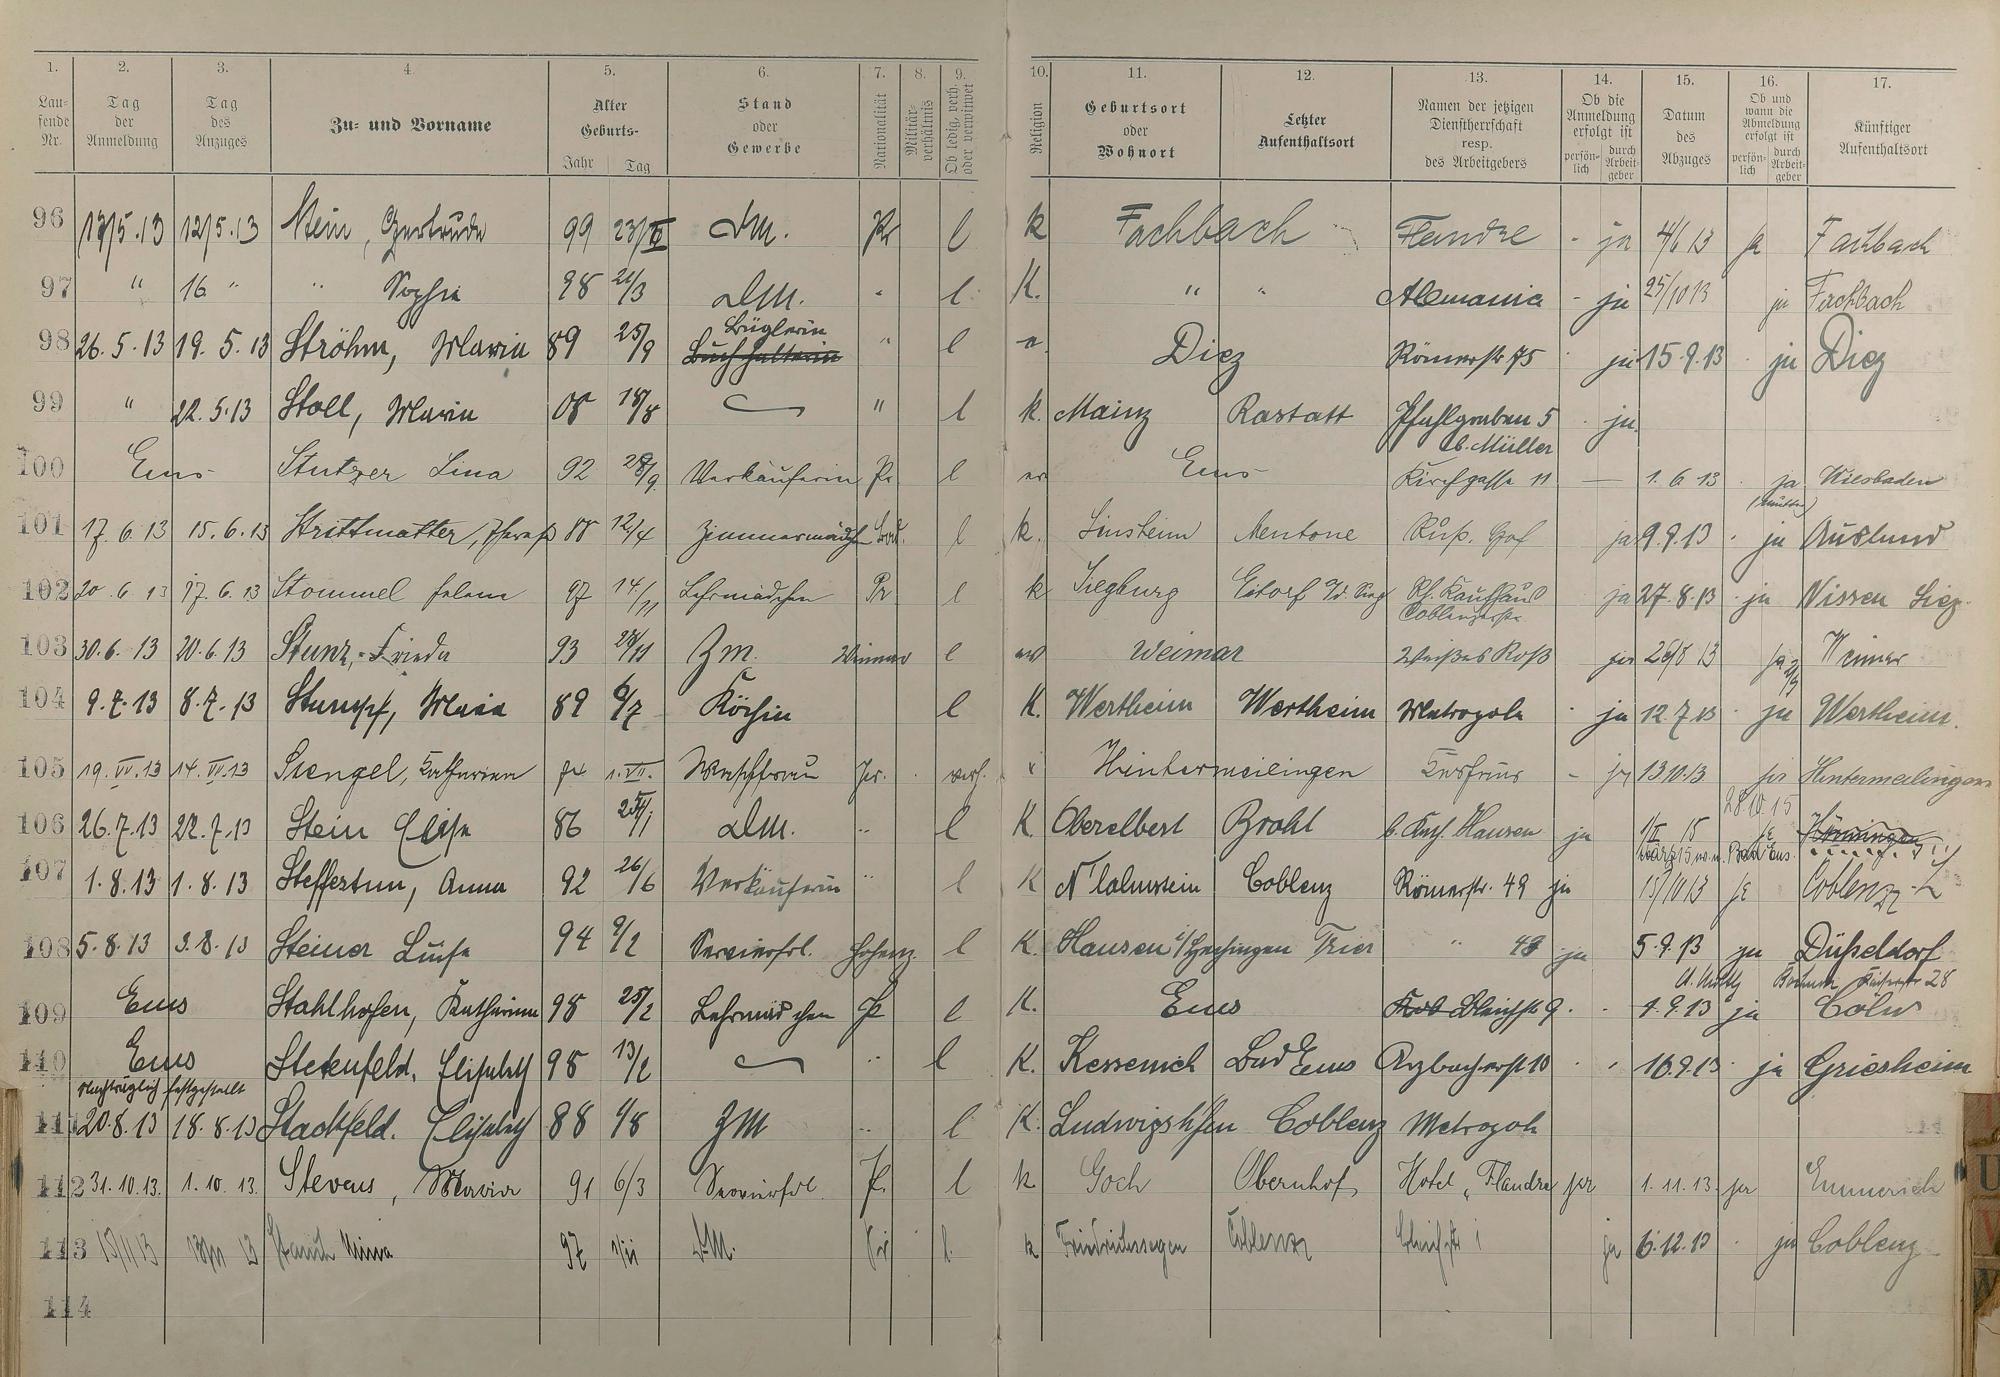 1. 2. 3. 4. 5. 6. 7. 8. 9. 10. 11. 12. 13. 14. 15. 16. 17.
Lau-
fende
Nr.
Tag
der
Anmeldung
Tag
des
Anzuges
Zu- und Vorname
Alter
Geburts-
Jahr Tag
Stand
oder
Gewerbe
Nationalität
Militär-
verhältnis
Ob ledig, verh.
oder verwitwet
Religion
Geburtsort
oder
Wohnort
Letzter
Aufenthaltsort
Namen der jetzigen
Dienstherrschaft
resp.
des Arbeitgebers
Ob die
Anmeldung
erfolgt ist
persön-
lich
durch
Arbeit-
geber
Datum
des
Abzuges
Ob und
wann die
Abmeldung
erfolgt ist
persön-
lich
durch
Arbeit-
geber
Künftiger
Aufenthaltsort
96 12/5.13 Gertrude 99 DM. Pr l k Fachbach Flandre - ja 4/6 13 ja Fachbach
97 " 16. " " Sophie 98 21/3 DM. " l K. " " Alemania - ja 25/10 13 ja Fachbach
98 26.5.13 19.5.13 Ströhm, Maria 89 25/9 Büglerin
Buchhalterin " l Diez Römerstr 75 ja 15.9.13 ja Diez
99 " 22.5.13 Stoll, Maria 08 18/8 " l k. Mainz Rastatt Pfahlgraben 5 ja
b. Müller
100 Ems Stutzer Lina 92 28/9 Verkäuferin Pr l Ems Kirchgasse 11 — 1.6 13 ja Wiesbaden
101 17.6.13 15.6.13 Strittmatter, 88 12/4 Zimmermädch Bad. l k. Sinsheim Mentone Ruß. Hof ja 9.9.13 ja Ausland
102 20.6.13 17.6.13 Stommel Helene 97 14/11 Lehrmädchen Pr l k Siegburg Eitorf a/d. Sieg Rh. Kaufhaus
Coblenzerstr. ja 27.8.13 ja Nissen Sieg.
103 30.6.13 20.6.13 Stunz, Frieda 93 28/11 Zm. Weimar l Weimar Weißes Roß ja 26/8 13 ja Weimar
104 9.7.13 8.7.13 Stumpf, Maria 89 6/7 Köchin l K. Wertheim Wertheim Metropole ja 12.7.13 ja Wertheim.
105 19.VII.13 14.VII.13 Stengel, Katharina Waschfrau Pr. verh. Hintermeilingen Kurhaus - ja 13 10.13 ja Hintermeilingen
106 26.7.13 22.7.13 Stein Elise 86 DM. " l K Oberelbert Brohl b. Hausen ja 28.10.15
107 1.8.13 1.8.13 Anna 92 26/6 Verkäuferin " l K N'lahnstein Coblenz Römerstr. 49 ja 15/11 13 ja Coblenz
108 5.8.13 3.8.13 Steiner Luise 94 9/2 Servierfrl. Hohenz. l K. Hausen i/Hechingen Trier " ja 5.9.13 ja Düsseldorf
28
109 Ems Stahlhofen, Katharina 98 25/2 Lehrmädchen Pr l K. Ems Bleichstr 9. 1.9.13 ja Cöln
110 Ems Steckenfeld, Elisabeth 98 13/2 " l K. Kessenich Bad Ems Arzbacherstr 10 16.9.13 ja Griesheim
nachträglich festgestellt
111 20.8.13 18.8.13 Stackfeld. Elisabeth 88 1/8 ZM " l K. Ludwigshafen Coblenz Metropole
112 31.10.13. 1.10 13. Stevens, Maria 91 6/3 Servierfrl. Pr. l k Goch Obernhof Hotel "Flandre ja 1.11.13 ja Emmerich
113 13/11 13 Mina 97 1/11 DM. Pr l. k Friedrichssegen Coblenz ja 6.12.13 ja Coblenz
114